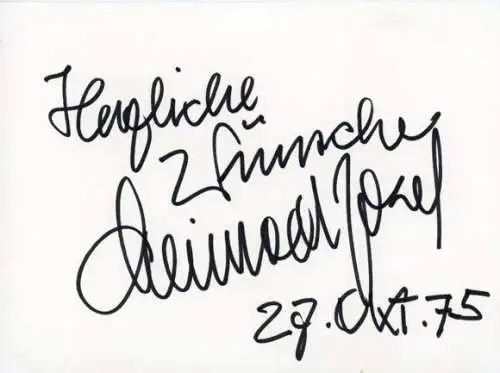 Herzliche
Wünsche
Josef
27. Okt. 75